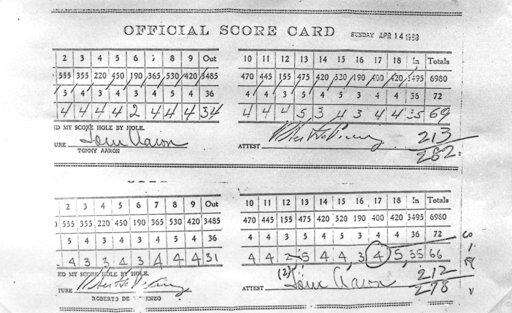 OFFICIAL SCORE CARD SUNDAY APR 14 1968
2 3 4 5 6 7 8 9 Out 10 11 12 13 14 15 16 17 18 In Totals
555 355 220 450 190 365 530 420 3485 470 445 155 475 420 520 190 400 420 3495 6980
5 4 3 4 3 4 5 4 36 4 4 3 5 4 5 3 4 4 36 72
4 4 4 4 2 4 4 4 34 4 4 4 5 3 4 3 4 4 35 69
ED MY SCORE HOLE BY HOLE.
213
URE Tommy Aaron ATTEST
TOMMY AARON
282
2 3 4 5 6 7 8 9 Out 10 11 12 13 14 15 16 17 18 In Totals
555 355 220 450 190 365 530 420 3485 470 445 155 475 420 520 190 400 420 3495 6980
5 4 3 4 3 4 5 4 36 4 4 3 5 4 5 3 4 4 36 72
4 3 3 4 3 4 4 4 31 4 4 2 5 4 4 3 4 5 35 66
ED MY SCORE HOLE BY HOLE.
(2) 212
TURE ATTEST Tommy Aaron
278
ROBERTO DE